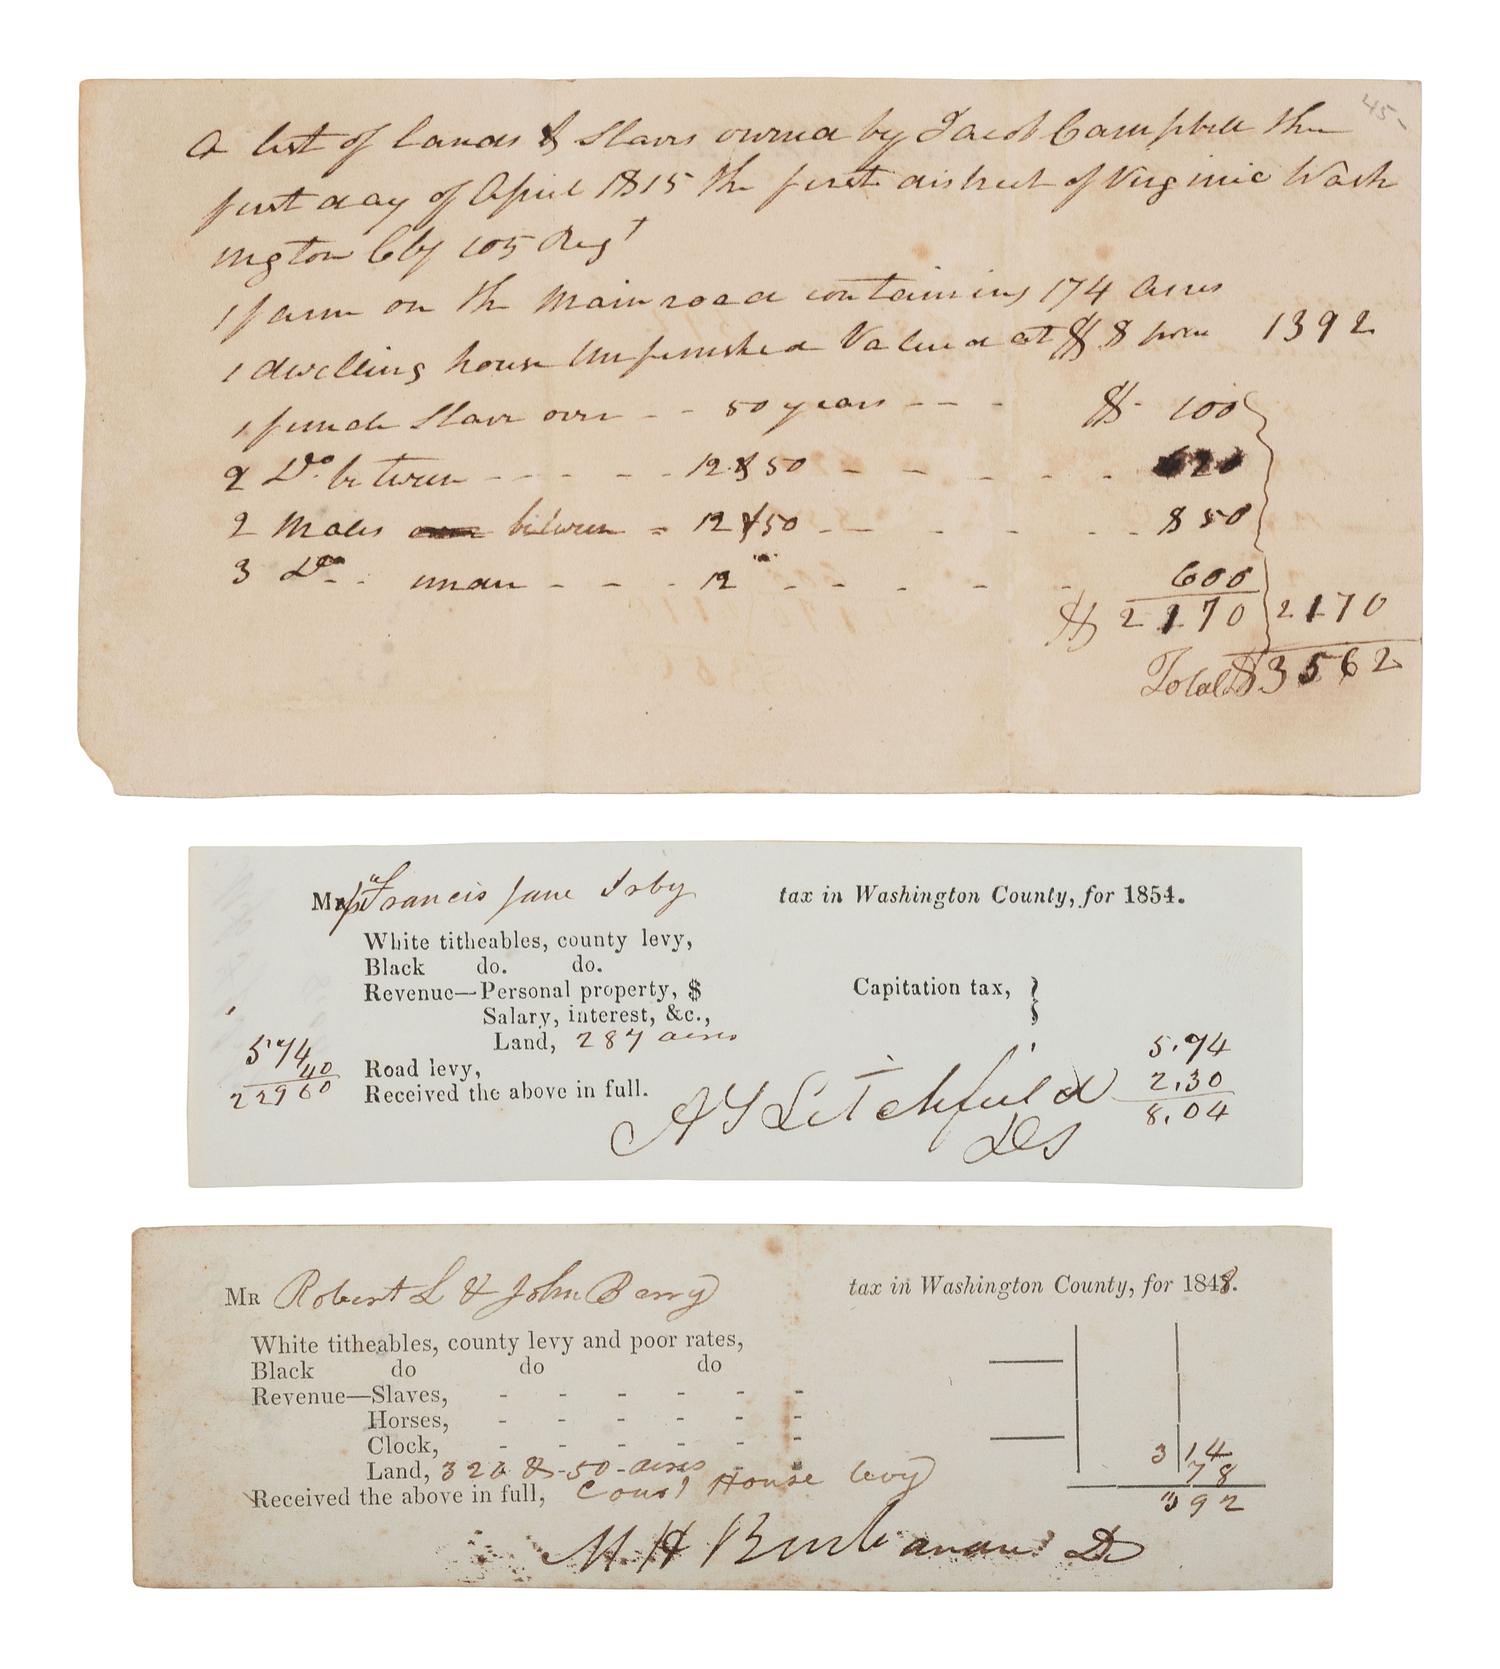 45-
A list of lands & Slaves owned by Jacob Campbell the
first day of April 1815 the first district of Virginia Wash
ington Cty 105 Regt
1 farm on the Main road containing 174 acres
1 dwelling house Unfinished Valued at $8 pr 1392
1 female Slave over - - 50 years - - - $ 100
2 Do. between - - - - 12 & 50 - - - - - 620
2 Males between - 12 & 50 - - - - - 850
3 Do. under - - - 12 - - - - - 600
$ 2170 2170
Total $ 3562
Mrs Francis Jane Irby tax in Washington County, for 1854.
White titheables, county levy,
Black do. do.
Revenue—Personal property, $ Capitation tax, }
Salary, interest, &c.,
Land, 287 acres
5.74 Road levy, 5.74
40 2.30
22960 Received the above in full. 8.04
A G Litchfield
DS
MR Robert L & John Berry tax in Washington County, for 1848.
White titheables, county levy and poor rates,
Black do do do
Revenue—Slaves, - - - - - -
Horses, - - - - - -
Clock, - - - - - -
Land, 326 & 50 acres 3 14
Received the above in full, Court House levy 78
3 92
M H Buchanan D